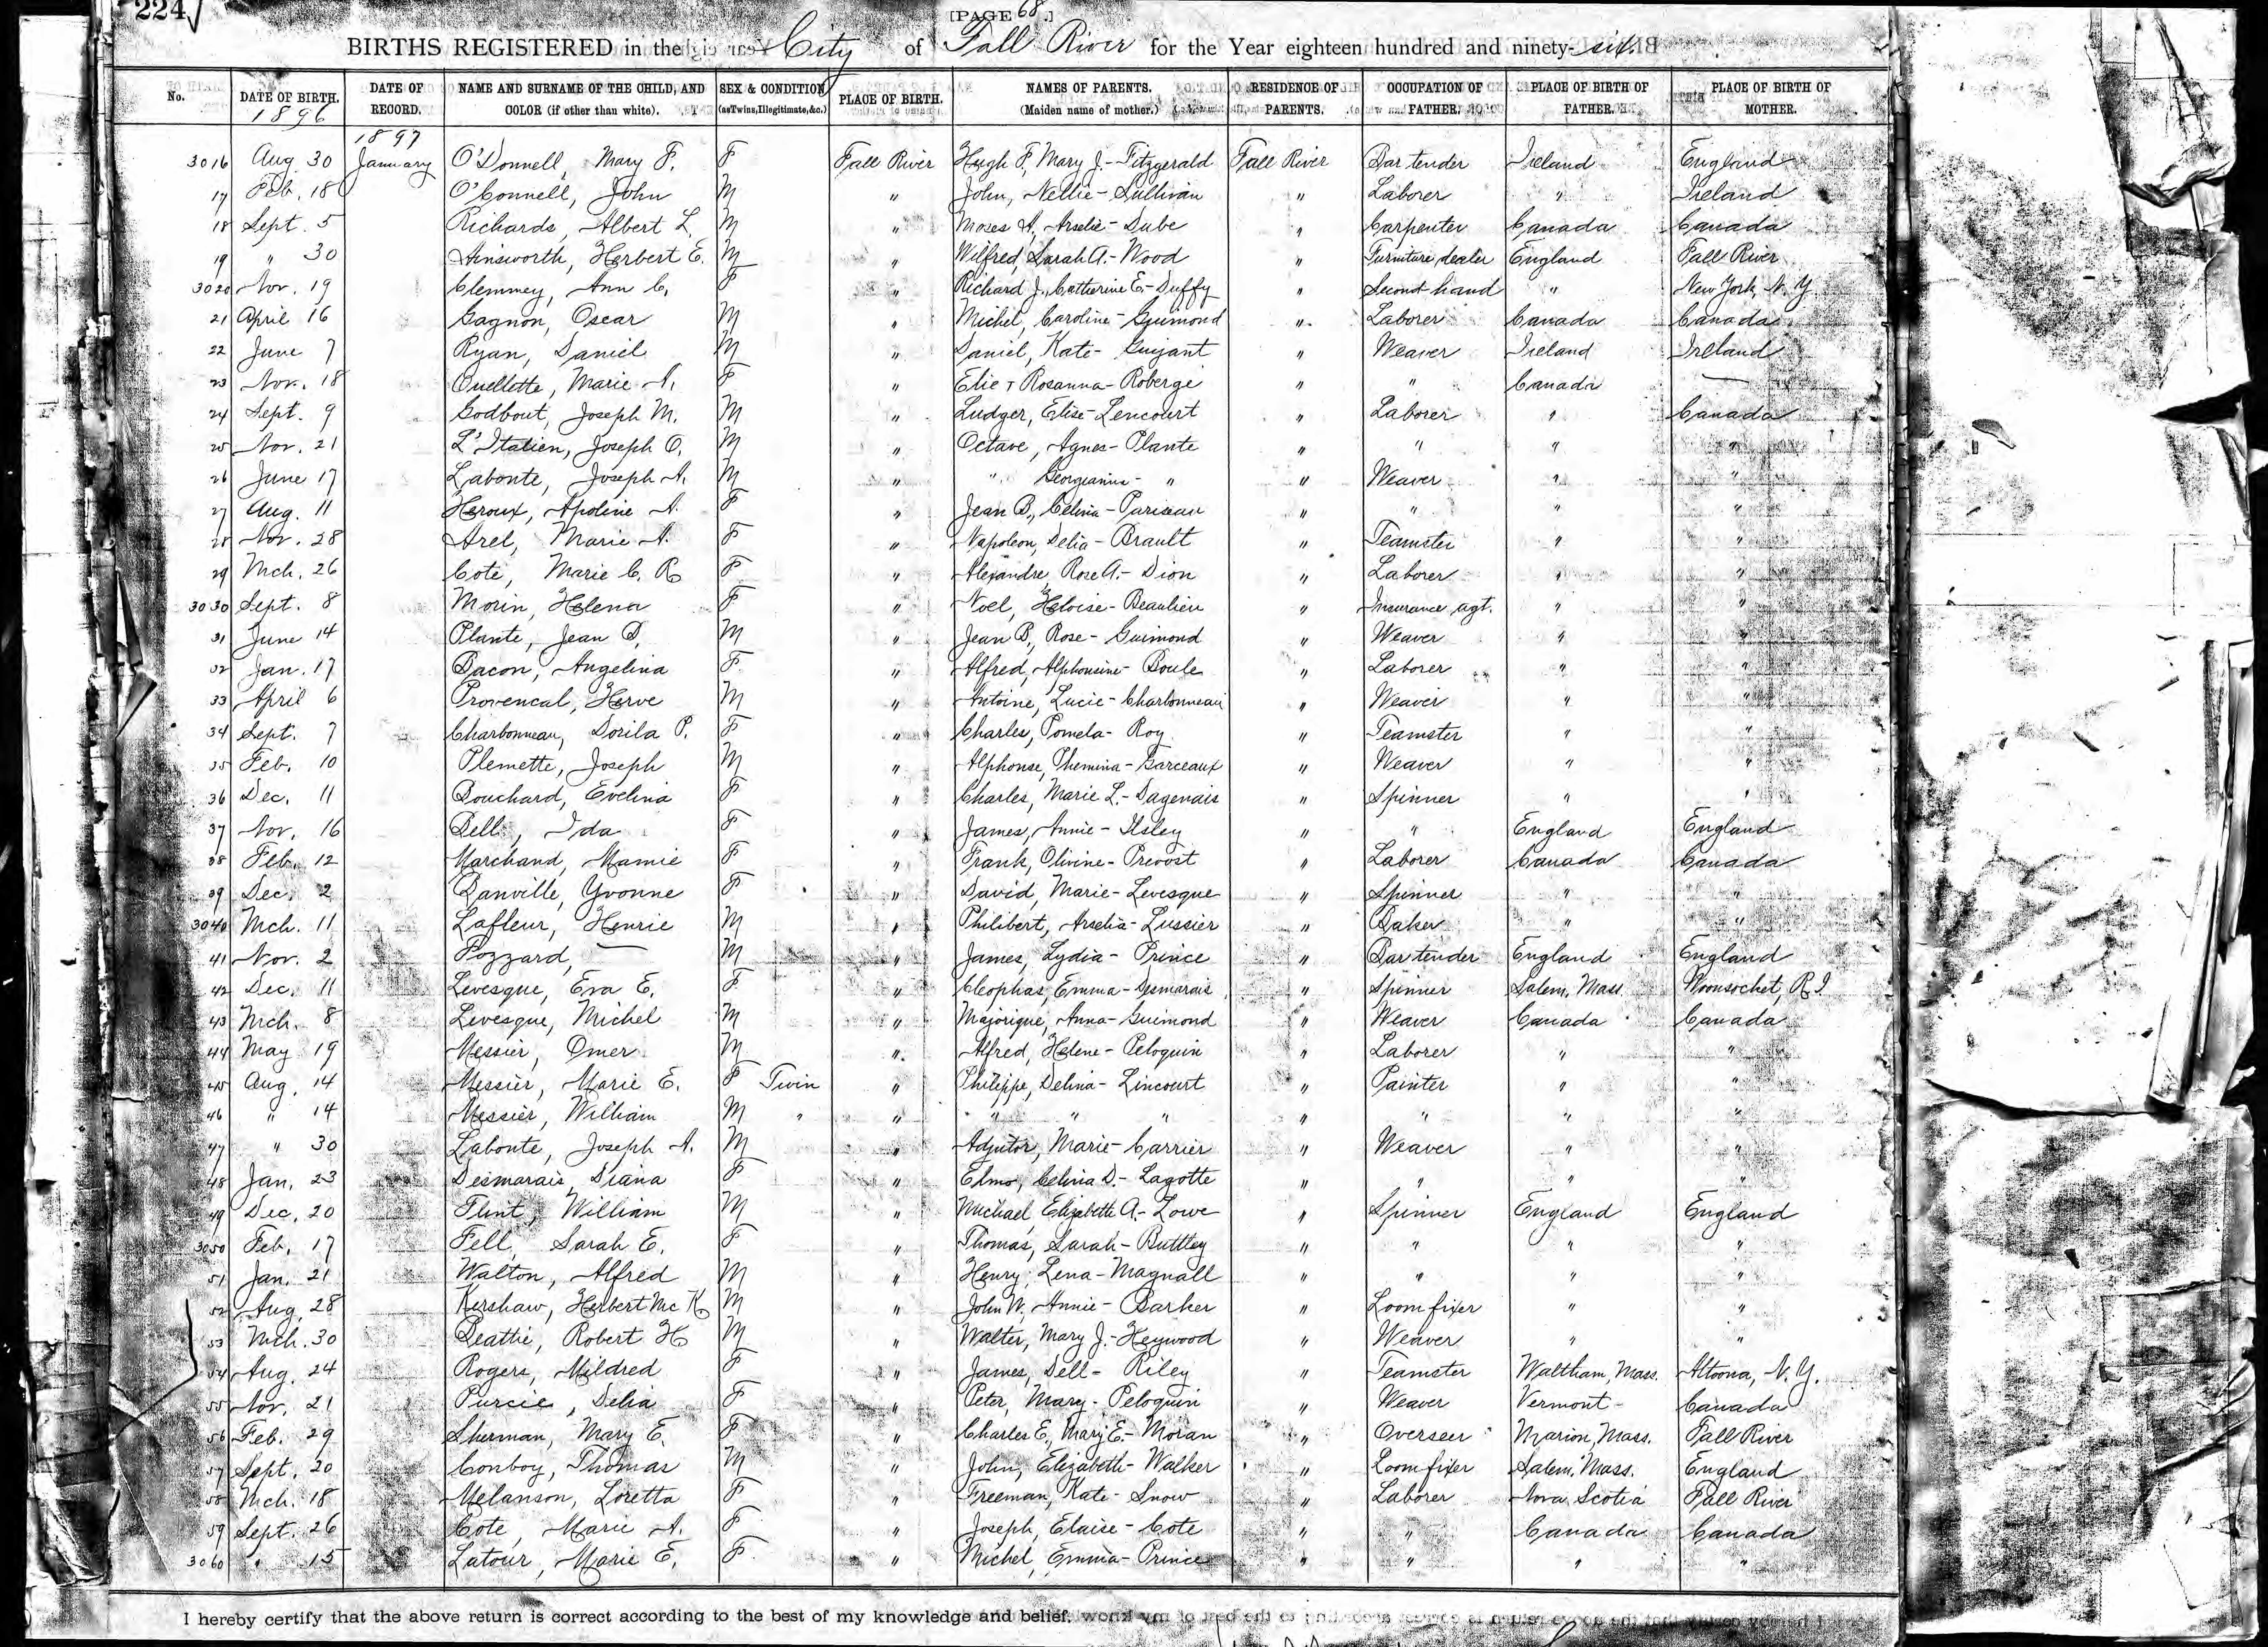 224
[PAGE 68.]
BIRTHS REGISTERED in the City of Fall River for the Year eighteen hundred and ninety-six.
No. DATE OF BIRTH. 1896 DATE OF RECORD. NAME AND SURNAME OF THE CHILD, AND COLOR (if other than white). SEX & CONDITION (as Twins, Illegitimate, &c.) PLACE OF BIRTH. NAMES OF PARENTS. (Maiden name of mother.) RESIDENCE OF PARENTS. OCCUPATION OF FATHER. PLACE OF BIRTH OF FATHER. PLACE OF BIRTH OF MOTHER.
1897
3016 Aug 30 January O'Donnell, Mary F. F Fall River Hugh F, Mary J.- Fitzgerald Fall River Bar tender Ireland England
17 Feb. 18 O'Connell, John M " John, Nellie- Sullivan " Laborer " Ireland
18 Sept. 5 Richards, Albert L. M " Moses A, Arselie- Dube " Carpenter Canada Canada
19 " 30 Ainsworth, Herbert E. M " Wilfred, Sarah A.- Wood " Furniture dealer England Fall River
3020 Nov. 19 Clemmey, Ann C. F " Richard J., Catherine E.- Duffy " Second hand " New York, N. Y.
21 April 16 Gagnon, Oscar M " Michel, Caroline- Guimond " Laborer Canada Canada
22 June 7 Ryan, Daniel M " Daniel, Kate- Guijant " Weaver Ireland Ireland
23 Nov. 18 Ouellotte, Marie A. F " Elie & Rosanna- Roberge " " Canada —
24 Sept. 9 Godbout, Joseph M. M " Ludger, Elise- Lencourt " Laborer " Canada
25 Nov. 21 L'Italien, Joseph O. M " Octave, Agnes- Plante " " " "
26 June 17 Labonte, Joseph A. M " " Georgianna- " " Weaver " "
27 Aug. 11 Heroux, Apoline A. F " Jean B., Celina- Pariseau " " " "
28 Nov. 28 Arel, Marie A. F " Napoleon, Delia- Brault " Teamster " "
29 Mch. 26 Cote, Marie C. R. F " Alexandre, Rose A.- Dion " Laborer " "
3030 Sept. 8 Morin, Helena F " Noel, Heloise- Beaulieu " Insurance agt. " "
31 June 14 Plante, Jean B, M " Jean B, Rose- Guimond " Weaver " "
32 Jan. 17 Bacon, Angelina F " Alfred, Alphonsine- Boule " Laborer " "
33 April 6 Provencal, Herve M " Antoine, Lucie- Charbonneau " Weaver " "
34 Sept. 7 Charbonneau, Dorila P. F " Charles, Pomela- Roy " Teamster " "
35 Feb. 10 Plemette, Joseph M " Alphonse, Phemina- Garceaux " Weaver " "
36 Dec. 11 Bouchard, Evelina F " Charles, Marie L.- Dagenais " Spinner " "
37 Nov. 16 Bell, Ida F " James, Annie- Ilsley " " England England
38 Feb. 12 Marchand, Mamie F " Frank, Olivine- Prevost " Laborer Canada Canada
39 Dec. 2 Banville, Yvonne F " David, Marie- Levesque " Spinner " "
3040 Mch. 11 Lafleur, Henrie M " Philibert, Arselia- Lussier " Baker " "
41 Nov. 2 Pozzard, — M " James, Lydia- Prince " Bar tender England England
42 Dec. 11 Levesque, Eva E. F " Cleophas, Emma- Desmarais " Spinner Salem, Mass. Woonsocket, R. I.
43 Mch. 8 Levesque, Michel M " Majorique, Anna- Guimond " Weaver Canada Canada
44 May 19 Messier, Omer M " Alfred, Helene- Peloquin " Laborer " "
45 Aug. 14 Messier, Marie E. F Twin " Philippe, Delina- Lincourt " Painter " "
46 " 14 Messier, William M " " " " " " " " "
47 " 30 Labonte, Joseph A. M " Adjutor, Marie- Carrier " Weaver " "
48 Jan. 23 Desmarais, Diana F " Elmo, Celina D.- Lagotte " " " "
49 Dec. 20 Flint, William M " Michael, Elizabeth A.- Lowe " Spinner England England
3050 Feb. 17 Fell, Sarah E. F " Thomas, Sarah- Buttley " " " "
51 Jan. 21 Walton, Alfred M " Henry, Lena- Magnall " " " "
52 Aug. 28 Kershaw, Herbert Mc K. M " John W., Annie- Barker " Loom fixer " "
53 Mch. 30 Beattie, Robert H M " Walter, Mary J.- Heywood " Weaver " "
54 Aug. 24 Rogers, Mildred F " James, Dell- Riley " Teamster Waltham, Mass. Altoona, N. Y.
55 Nov. 21 Purcie, Delia F " Peter, Mary- Peloquin " Weaver Vermont- Canada
56 Feb. 29 Sherman, Mary E. F " Charles E., Mary E.- Moran " Overseer Marion, Mass. Fall River
57 Sept. 20 Conboy, Thomas M " John, Elizabeth- Walker " Loom fixer Salem, Mass. England
58 Mch. 18 Melanson, Loretta F " Freeman, Kate- Snow " Laborer Nova Scotia Fall River
59 Sept. 26 Cote, Marie A. F " Joseph, Elaise- Cote " " Canada Canada
3060 " 15 Latour, Marie E. F " Michel, Emma- Prince " " " "
I hereby certify that the above return is correct according to the best of my knowledge and belief.